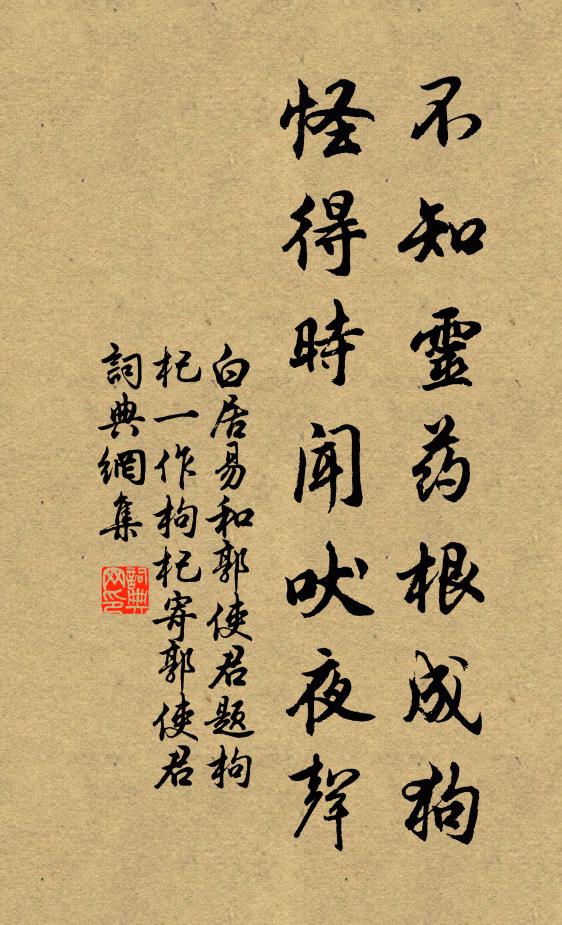 不知靈药根成狗
怪得時闻吠夜聲
白居易和郭使君題枸
杞一作枸杞寄郭使君
詞典網集
詞典网印